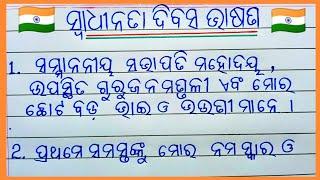 ସ୍ୱାଧୀନତା ଦିବସ ଭାଷଣ
1. ସମ୍ମାନନୀୟ ସଭାପତି ମହୋଦୟ,
ଉପସ୍ଥିତ ଗୁରୁଜନମଣ୍ଡଳୀ ଏବଂ ମୋର
ଛୋଟ ବଡ଼ ଭାଇ ଓ ଭଉଣୀ ମାନେ ।
2. ପ୍ରଥମେ ସମସ୍ତଙ୍କୁ ମୋର ନମସ୍କାର ଓ